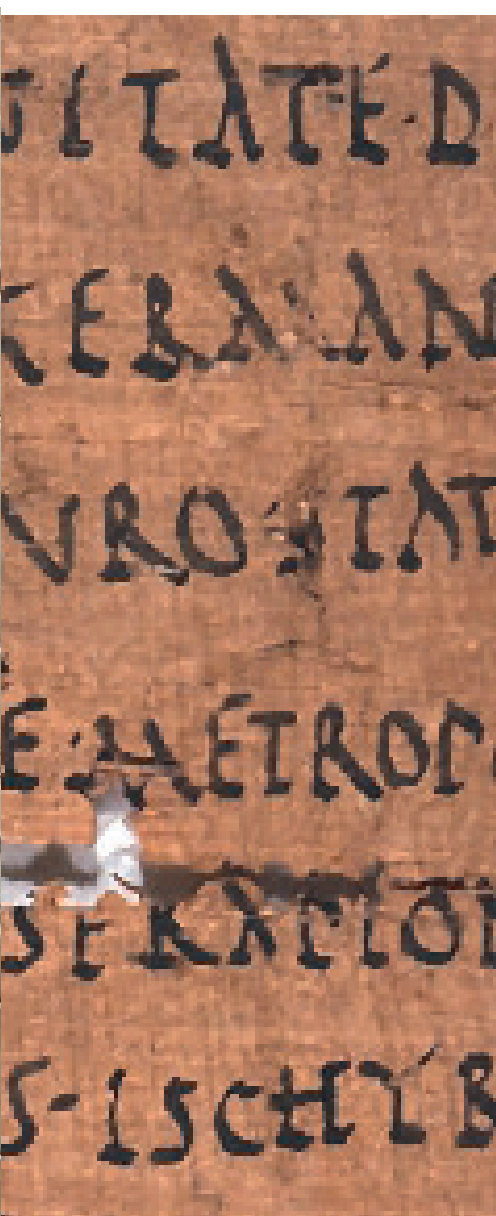 ITATE·D
ERA AN
VRO· TAT
E·METROP
SERAPIO
S·ISCHYR